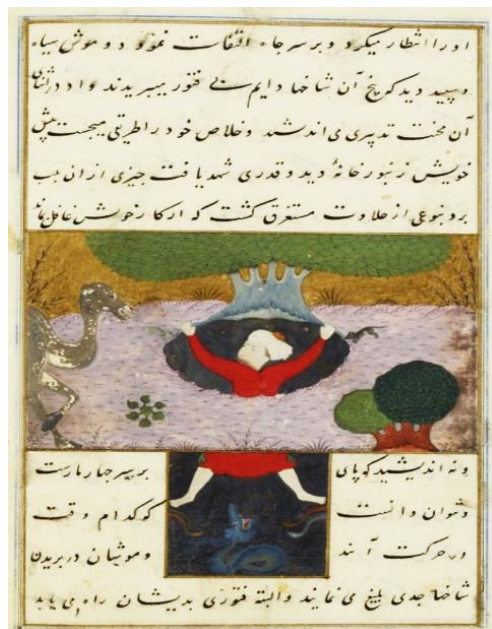 اورا انتظار میکرد و بر سر چاه التفات نمود دو موش سیاه
و سپید دید که بیخ آن شاخها دایم بی فتور میبریدند و او در اثنای
آن محنت تدبیری می اندیشد و خلاص خود را طریقی میجست پیش
خویش زنبور خانهٔ دید و قدری شهد یافت چیزی از ان بلب
برد بنوعی از حلاوت مستغرق گشت که از کار خویش غافل ماند
ونه اندیشید کو پای بر سر چهار مارست
و نتوان دانست کو کدام وقت
در حرکت آیند و موشان در بریدن
شاخها جدی بلیغ می نمایند و البته فتوری بدیشان راه می یابد